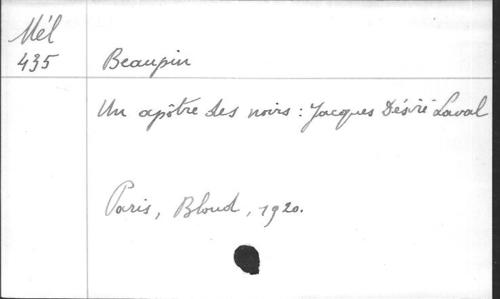 Mél
435
Beaupin
Un apôtre des noirs : Jacques Désiré Laval
Paris, Bloud, 1920.